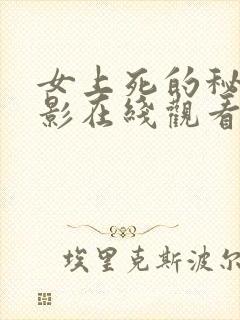 女上死的秘
影在线觀看
埃里克斯波尔